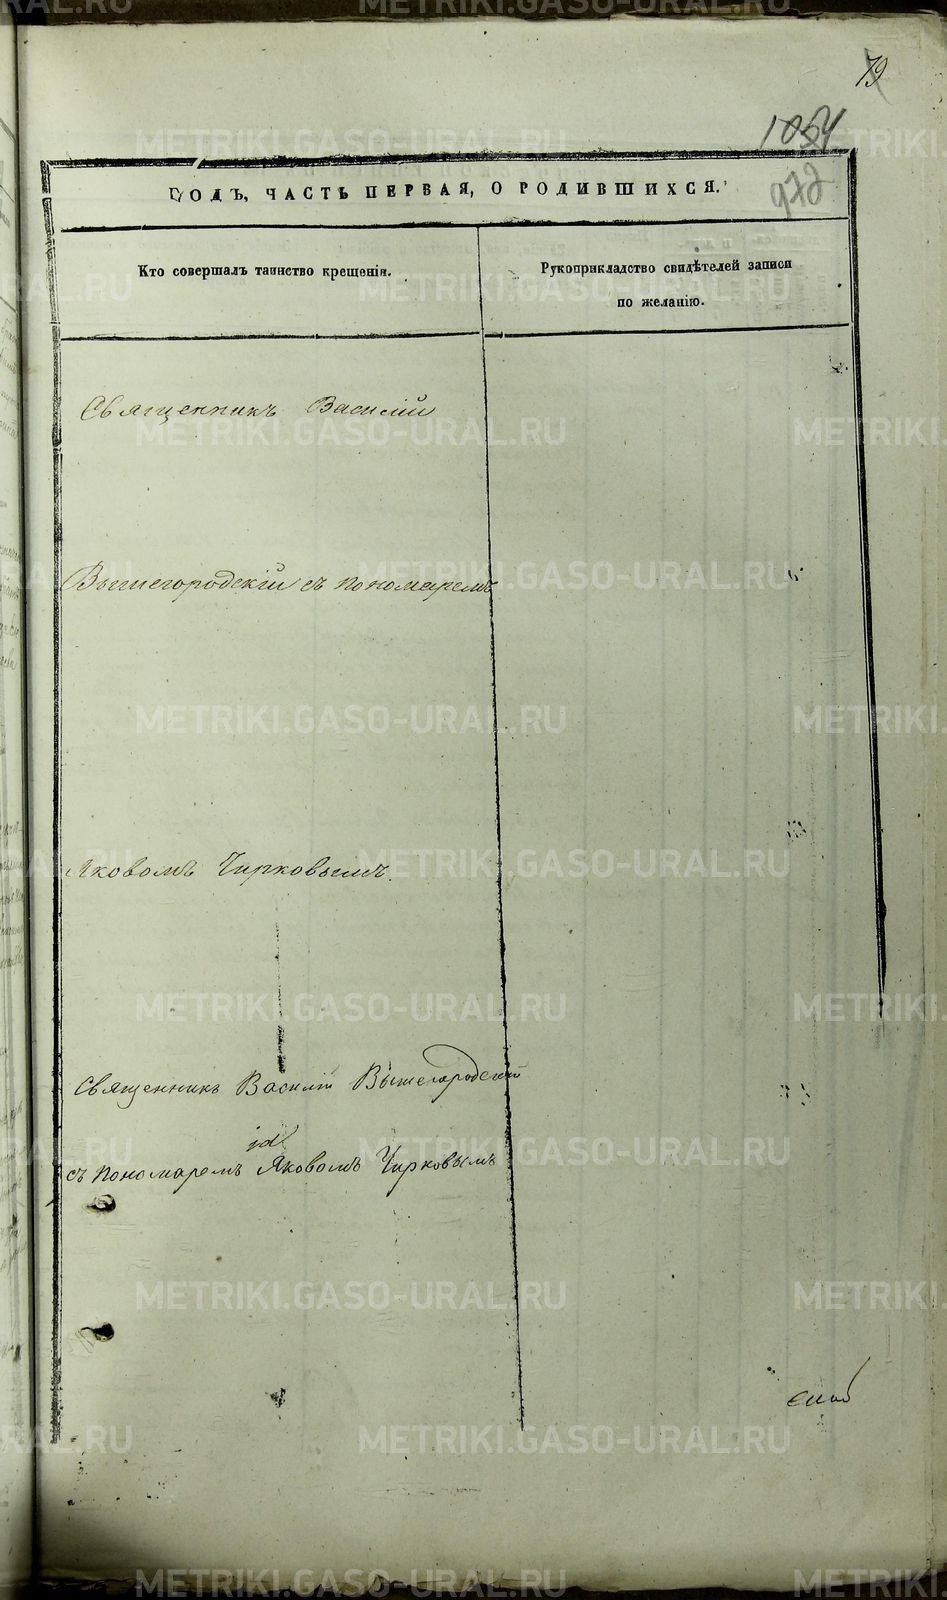 79
1054
972
ГОДЪ, ЧАСТЬ ПЕРВАЯ, О РОДИВШИХСЯ.
Кто совершалъ таинство крещенія.
Рукоприкладство свидѣтелей записи
по желанію.
Священникъ Василій
Вышегородскій съ пономаремъ
Яковомъ Чирковымъ.
Священникъ Василій Вышегородскій
съ пономаремъ Яковомъ Чирковымъ
METRIKI.GASO-URAL.RU